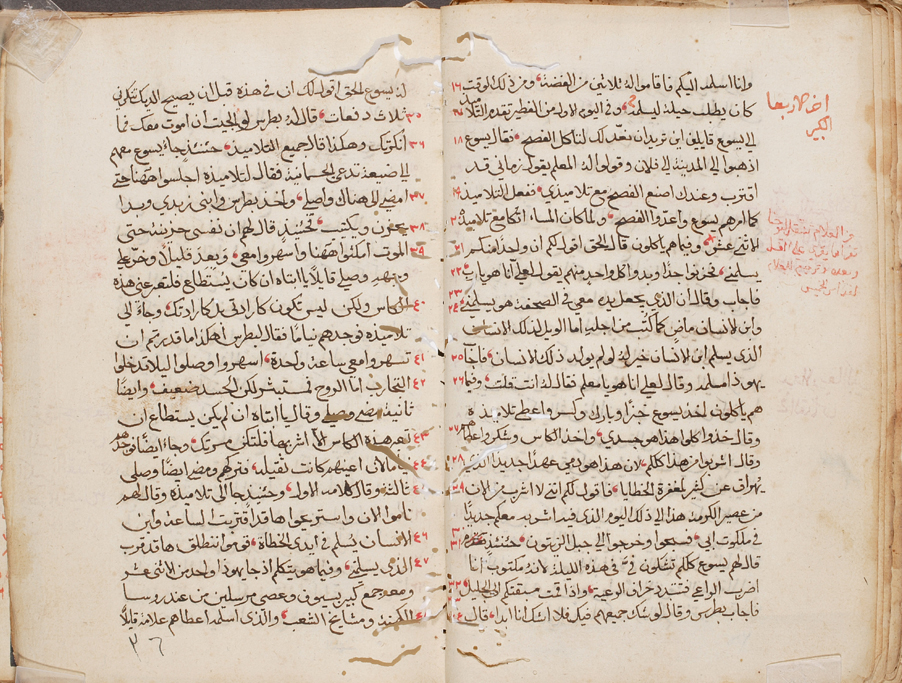 وانا اسلمه اليكم فاقاموا له ثلاثين من الفضة ومن ذلك الوقت ١٦
كان يطلب حيلة ليسلمه وفي اليوم الاول من الفطير تقدم التلاميذ
الي يسوع قايلين اين تريد ان نعد لك لتاكل الفصح فقال يسوع ١٨
اذهبوا الي المدينة الي فلان وقولوا له المعلم يقول زماني قد
اقترب وعندك اصنع الفصح مع تلاميذي ففعل التلاميذ ١٩
كما امرهم يسوع واعدوا الفصح ولما كان المساء اتكا مع تلاميذه ٢٠
الاثني عشر وفيما هم ياكلون قال الحق اقول لكم ان واحدا منكم ٢١
يسلمني فحزنوا جدا وبدوا كل واحد منهم يقول لعلي انا هو يارب ٢٢
فاجاب وقال ان الذي يجعل يده معي في الصحفة هو يسلمني ٢٣
وابن الانسان ماض كما كتب من اجله اما الويل لذلك الانسان ٢٤
الذي يسلم ابن الانسان خير له لو لم يولد ذلك الانسان فاجاب ٢٥
يهوذا مسلمه وقال لعلي انا هو يا معلم فقال له انت قلت وفيما ٢٦
هم ياكلون اخذ يسوع خبزا وبارك وكسر واعطي تلاميذه
وقال خذوا كلوا هذا هو جسدي واخذ الكاس وشكر واعطاهم ٢٧
وقال اشربوا من هذا كلكم لان هذا هو دمي عهدا جديدا الذي ٢٨
يهراق عن كثير لمغفرة الخطايا فاقول لكم انني لا اشرب من الان ٢٩
من عصير الكرمة هذا الي ذلك اليوم الذي فيه اشربه معكم جديدا
في ملكوت ابي فسبحوا وخرجوا الي جبل الزيتون حينئذ ٣٠
قال لهم يسوع كلكم تشكون في في هذه الليلة لانه مكتوب انا ٣١
اضرب الراعي فتتبدد خراف الرعية واذا قمت سبقتكم الي الجليل ٣٢
فاجاب بطرس وقال لو شك جميعهم فيك فلا اشك انا ابدا قال
له يسوع الحق اقول لك ان في هذه قبل ان يصيح الديك تنكرني
ثلاث دفعات قال له بطرس لو الجيت ان اموت معك فما ٣٥
انكرتك وهكذا قال جميع التلاميذ حينئذ جاء يسوع معهم ٣٦
الي ضيعة تدعي الجسمانية فقال لتلاميذه اجلسوا ههنا حتي
امضي الي هناك واصلي واخذ بطرس وابني زبدي وبدا ٣٧
يحزن ويكتئب حينئذ قال لهم ان نفسي حزينة حتي ٣٨
الموت امكثوا ههنا واسهروا معي وبعد قليلا وخر علي ٣٩
وجهه وصلي قايلا يا ابتاه ان كان يستطاع فلتعبر عني هذه
الكاس ولكن ليس تكون كارادتي بل كارادتك وجاء الي ٤٠
تلاميذه فوجدهم نياما فقال لبطرس اهكذا ما قدرتم ان
تسهروا معي ساعة واحدة اسهروا وصلوا ليلا تدخلوا ٤١
التجارب اما الروح فمستبشر لكن الجسد ضعيف وايضا ٤٢
ثانية مضي وصلي وقال يا ابتاه ان لم يكن يستطاع ان
تعبر هذه الكاس الا اشربها فلتكن مسرتك وجاء ايضا فوجدهم ٤٣
لان اعينهم كانت ثقيلة فتركهم ومضي ايضا وصلي
ثالثة وقال كلامه الاول وحينئذ جا الي تلاميذه وقال لهم
ناموا الان واستريحوا ها قد اقتربت الساعة وابن
الانسان يسلم في ايدي الخطاة قوموا ننطلق ها قد قرب ٤٦
الذي يسلمني وفيما هو يتكلم اذ جا يهوذا واحد من الاثني عشر ٤٧
ومعه جمع كبير بسيوف وعصي مرسلين من عند روسا
الكهنة ومشايخ الشعب والذي اسلمه اعطاهم علامة قايلا